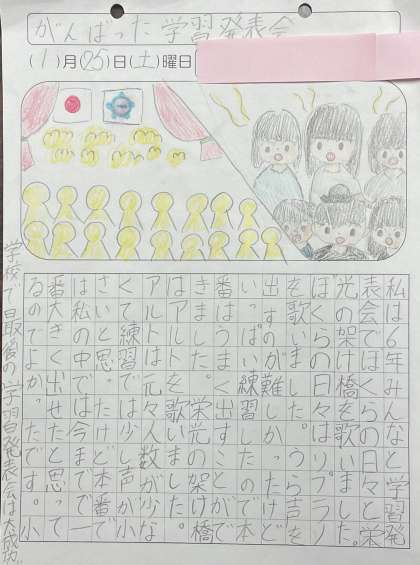 がんばった学習発表会
(1)月(25)日(土)曜日
私は6年みんなと学習発
表会でぼくらの日々と栄
光の架け橋を歌いました。
ぼくらの日々はソプラノ
を歌いました。うら声を
出すのが難しかったけど
いっぱい練習したので本
番はうまく出すことがで
きました。栄光の架け橋
はアルトを歌いました。
アルトは元々人数が少な
くて練習では少し声が小
さいと思ったけど本番で
は私の中では今までで一
番大きく出せたと思って
るのでよかったです。
学校で最後の学習発表会は大成功!!